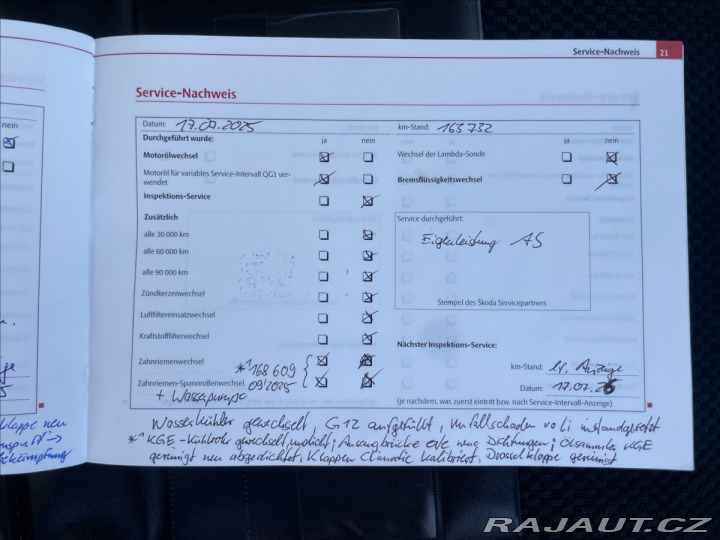 Service-Nachweis 21
Service-Nachweis
Datum: 17.07.2025
km-Stand: 163732
Durchgeführt wurde:
ja nein
ja nein
nein
Motorölwechsel
Wechsel der Lambda-Sonde
Motoröl für variables Service-Intervall QG1 ver-
wendet
Bremsflüssigkeitswechsel
Inspektions-Service
Zusätzlich
Service durchgeführt:
alle 30 000 km
Eigenleistung AS
alle 60 000 km
alle 90 000 km
Zündkerzenwechsel
Stempel des Škoda Servicepartners
Luftfiltereinsatzwechsel
Kraftstofffilterwechsel
Nächster Inspektions-Service:
Zahnriemenwechsel
*¹168 609
km-Stand: lt. Anzeige
Zahnriemen-Spannrollenwechsel 09/2025
Datum: 17.07.26
+ Wasserpumpe
(je nachdem, was zuerst eintritt bzw. nach Service-Intervall-Anzeige)
Wasserkühler gewechselt, G12 aufgefüllt, Unfallschaden vo li instandgesetzt
*¹ KGE-Kühlrohr gewechselt, undicht; Ansaugbrücke neue Dichtungen; Ölsammler KGE
gereinigt neu abgedichtet, Klappen Climatic kalibriert, Drosselklappe gereinigt
klappe neu
bekämpfung
RAJAUT.CZ